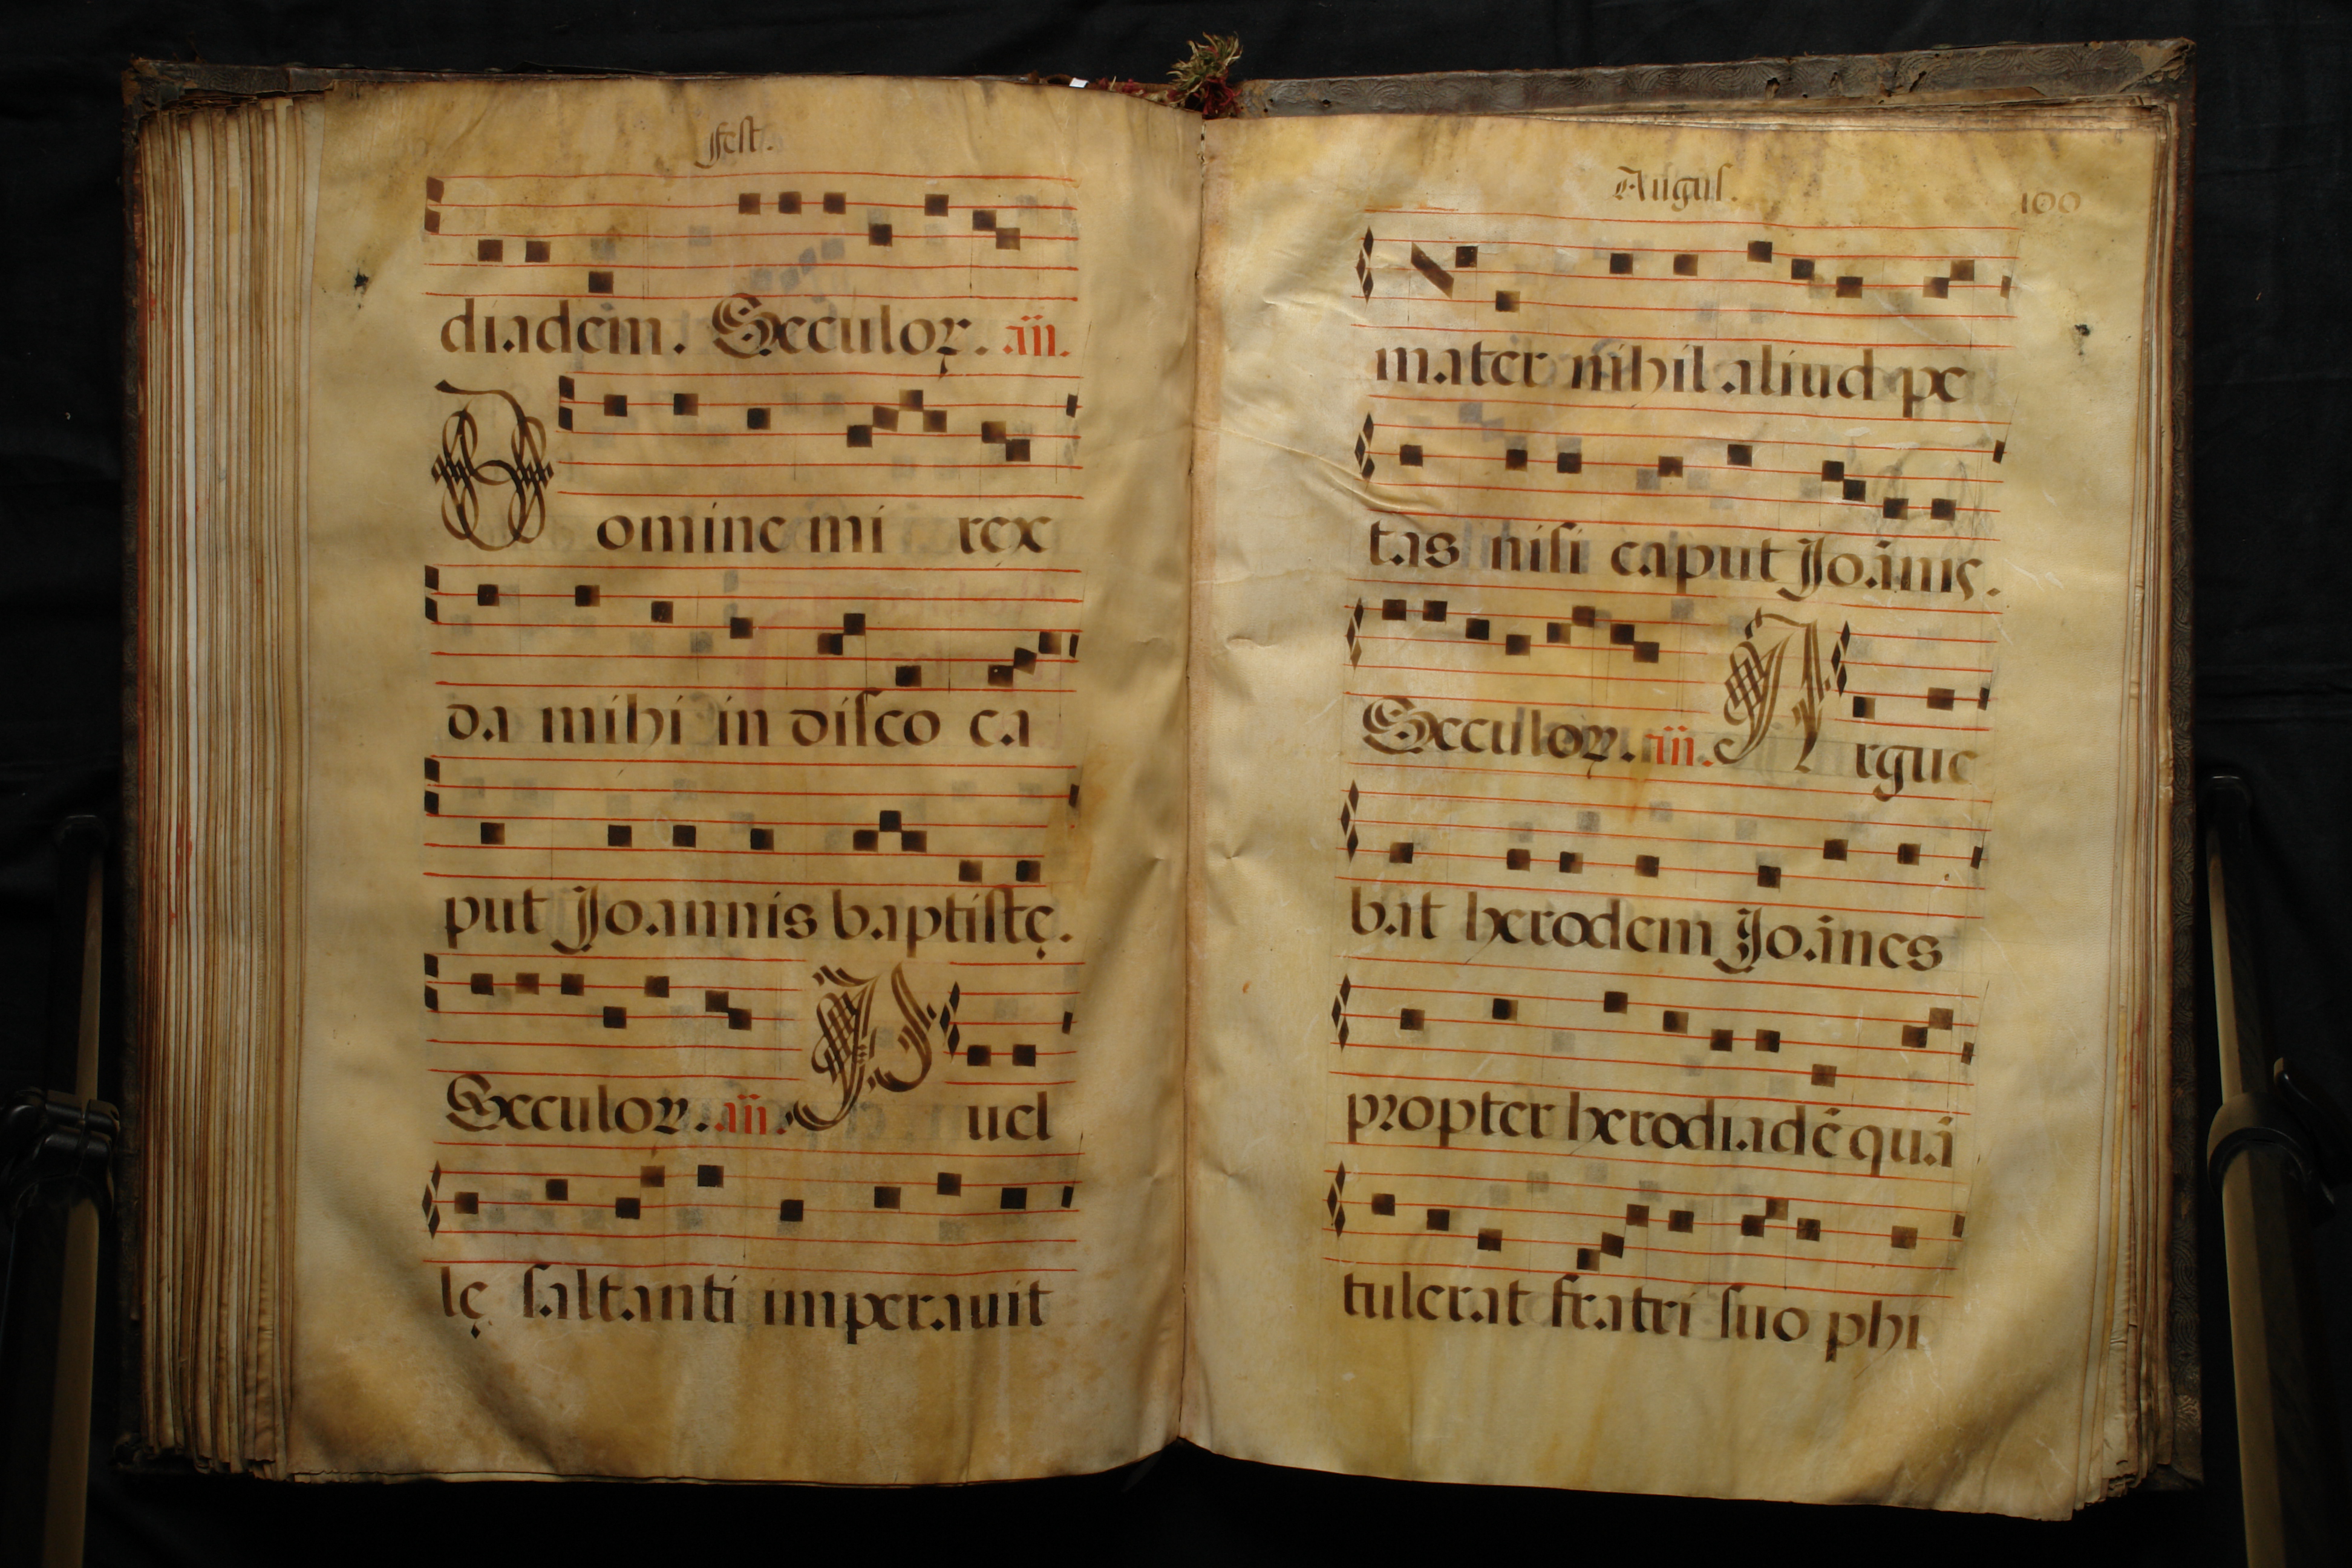 fest.
diadem. Seculoꝝ. añ.
Domine mi rex
da mihi in disco ca
put Joannis baptistę.
Seculoꝝ. añ. Puel
lę saltanti imperauit
Augus. 100
mater nihil aliud pe
tas nisi caput Joānis.
Seculoꝝ. añ. Argue
bat herodem Joānes
propter herodiadē quā
tulerat fratri suo phi